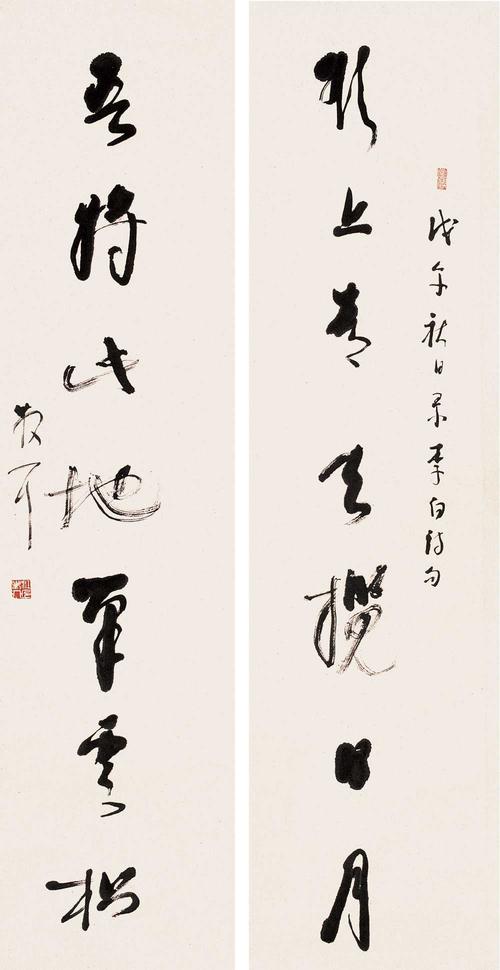 戊午秋日录李白詩句
欲上青天攬日月
吾將此地巢雲松
散耳